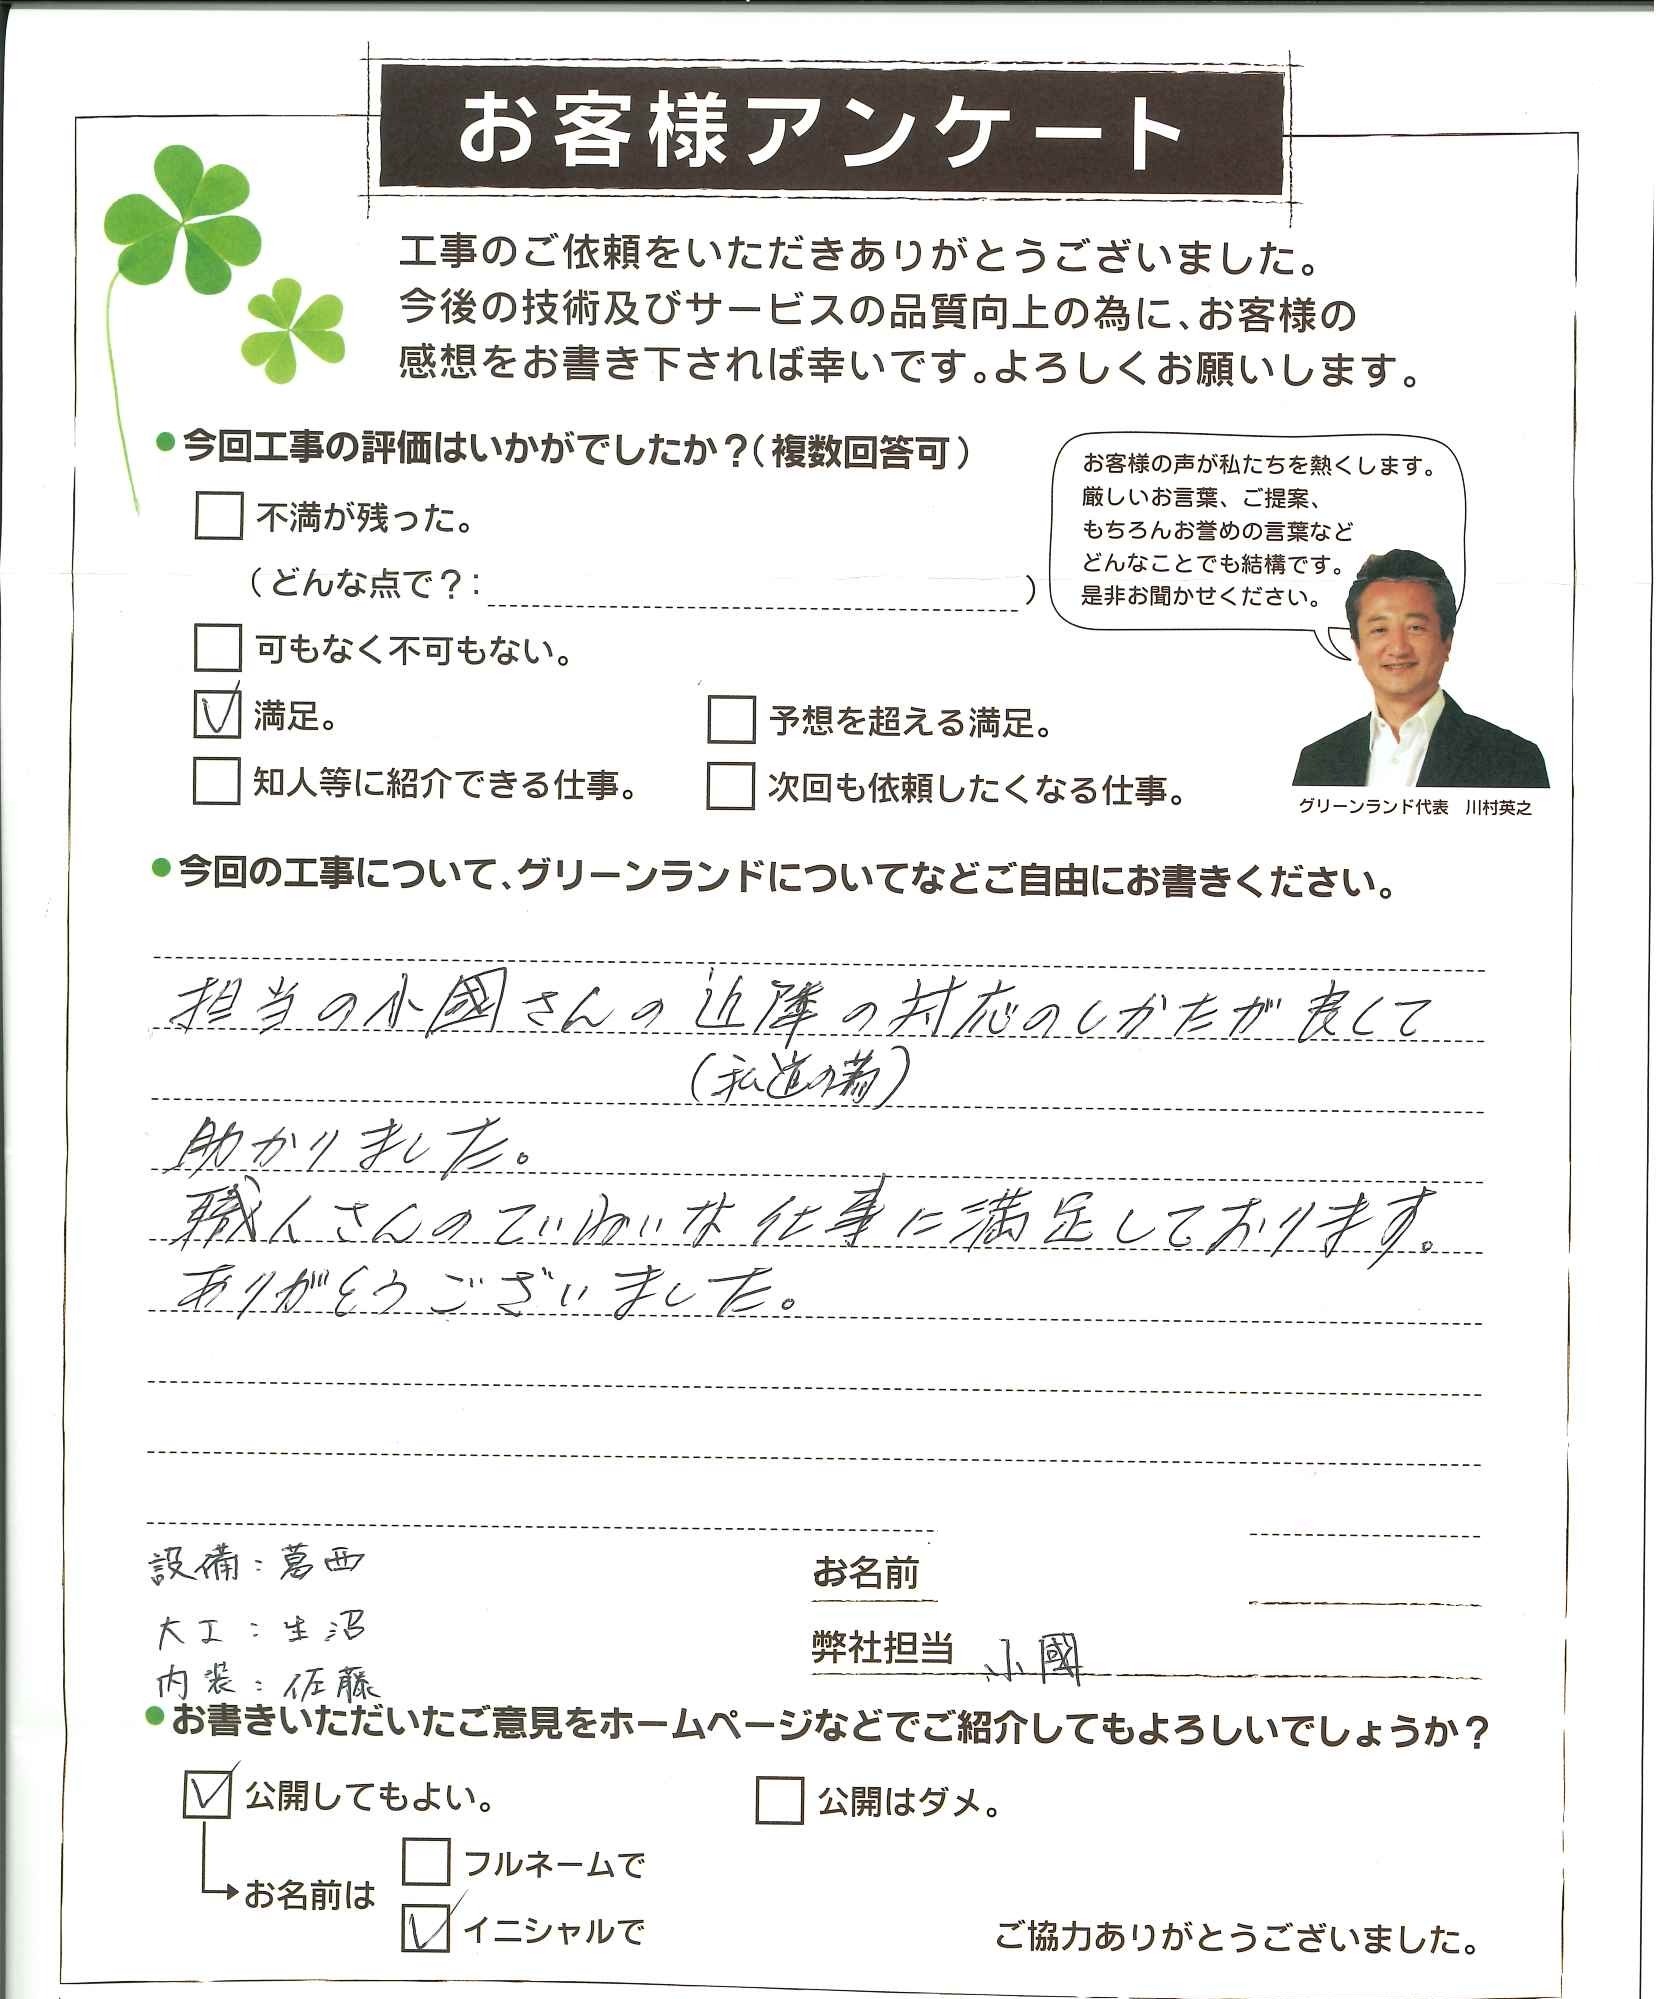 お客様アンケート
工事のご依頼をいただきありがとうございました。
今後の技術及びサービスの品質向上の為に、お客様の
感想をお書き下されば幸いです。よろしくお願いします。
●今回工事の評価はいかがでしたか？(複数回答可)
不満が残った。
(どんな点で？: )
可もなく不可もない。
満足。
予想を超える満足。
知人等に紹介できる仕事。
次回も依頼したくなる仕事。
お客様の声が私たちを熱くします。
厳しいお言葉、ご提案、
もちろんお誉めの言葉など
どんなことでも結構です。
是非お聞かせください。
グリーンランド代表　川村英之
●今回の工事について、グリーンランドについてなどご自由にお書きください。
担当の小國さんの近隣の対応のしかたが良くて
(私道の為)
助かりました。
職人さんのていねいな仕事に満足しております。
ありがとうございました。
設備：葛西
大工：生沼
内装：佐藤
お名前
弊社担当 小國
●お書きいただいたご意見をホームページなどでご紹介してもよろしいでしょうか？
公開してもよい。
公開はダメ。
お名前は
フルネームで
イニシャルで
ご協力ありがとうございました。